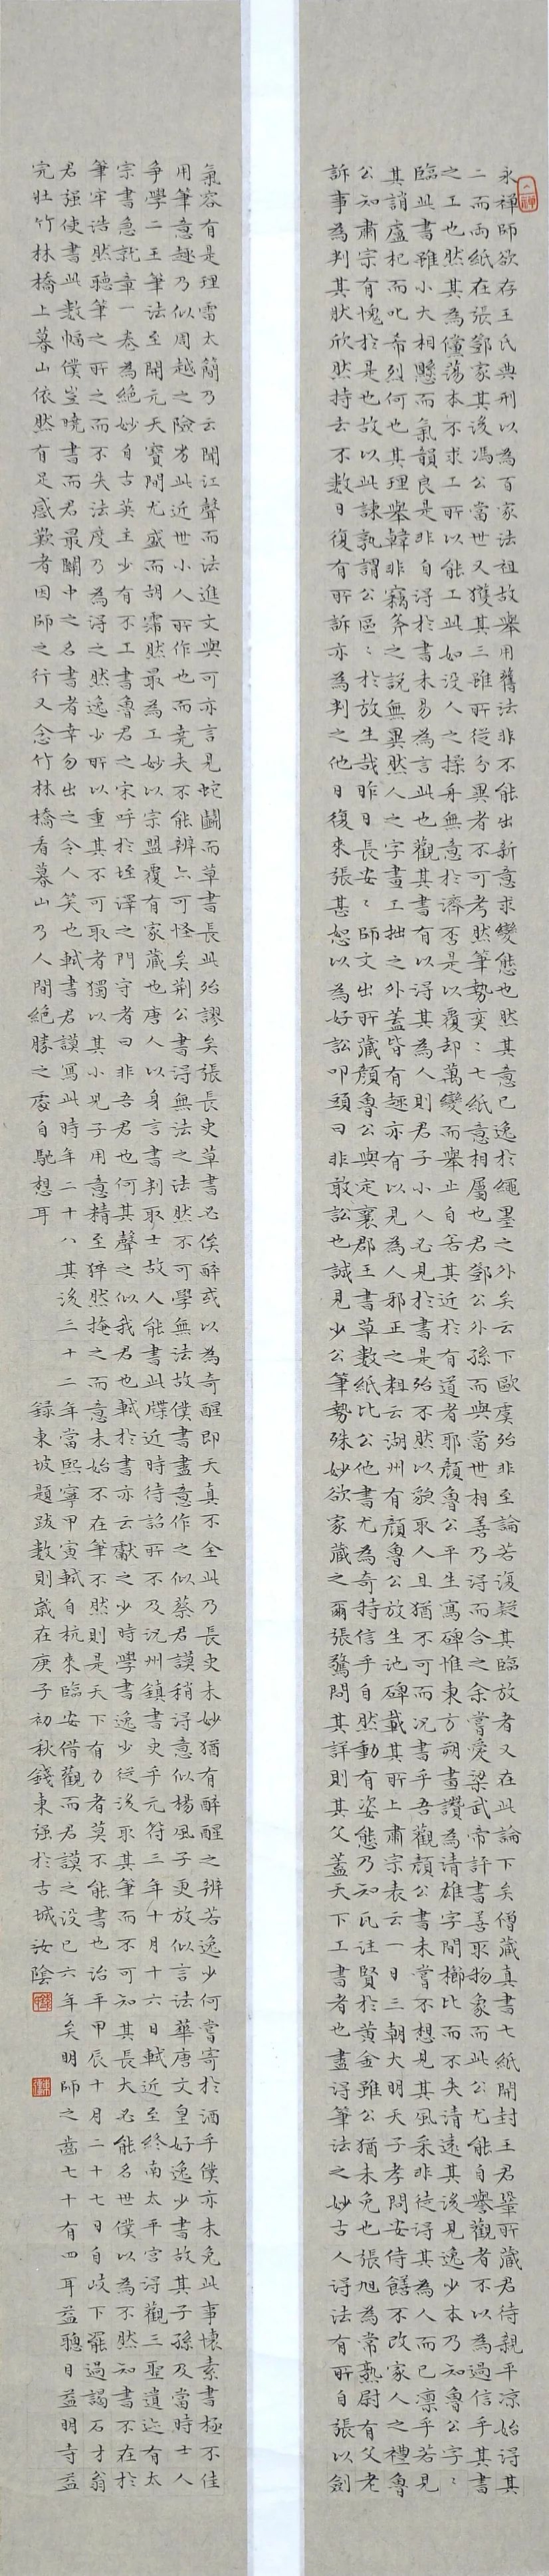 永禪師欲存王氏典刑以為百家法祖故舉用舊法非不能出新意求變態也然其意已逸於繩墨之外矣云下歐虞殆非至論若復疑其臨放者又在此論下矣僧藏真書七紙開封王君鞏所藏君侍親平涼始得其
二而兩紙在張鄧家其後馮公當世又獲其三雖所從分異者不可考然筆勢奕〻七紙意相屬也君鄧公外孫而與當世相善乃得而合之余嘗愛梁武帝評書善取物象而此公尤能自譽觀者不以為過信乎其書
之工也然其為儻蕩本不求工所以能工此如没人之操舟無意於濟否是以覆却萬變而舉止自若其近於有道者耶顏魯公平生寫碑惟東方朔畫讚為清雄字間櫛比而不失清遠其後見逸少本乃知魯公字〻
臨此書雖小大相懸而氣韻良是非自得於書未易為言此也觀其書有以得其為人則君子小人必見於書是殆不然以貌取人且猶不可而况書乎吾觀顏公書未嘗不想見其風采非徒得其為人而已凛乎若見
其誚盧杞而叱希烈何也其理與韓非竊斧之説無異然人之字畫工拙之外蓋皆有趣亦有以見為人邪正之粗云湖州有顏魯公放生池碑載其所上肅宗表云一日三朝大明天子孝問安侍饍不改家人之禮魯
公知肅宗有愧於是也故以此諫孰謂公區〻於放生哉昨日長安〻師文出所藏顏魯公與定襄郡王書草數紙比公他書尤為奇特信乎自然動有姿態乃知瓦注賢於黄金雖公猶未免也張旭為常熟尉有父老
訴事為判其狀欣然持去不數日復有所訴亦為判之他日復來張甚恕以為好訟叩頭曰非敢訟也誠見少公筆勢殊妙欲家藏之爾張驚問其詳則其父蓋天下工書者也盡得筆法之妙古人得法有所自張以劍
氣容有是理雷太簡乃云聞江聲而法進文與可亦言見蛇鬬而草書長此殆謬矣張長史草書必俟醉或以為奇醒即天真不全此乃長史未妙猶有醉醒之辨若逸少何嘗寄於酒乎僕亦未免此事懷素書極不佳
用筆意趣乃似周越之險劣此近世小人所作也而堯夫不能辨亦可怪矣荆公書得無法之法然不可學無法故僕書盡意作之似蔡君謨稍得意似楊風子更放似言法華唐文皇好逸少書故其子孫及當時士人
爭學二王筆法至開元天寶間尤盛而胡霈然最為工妙以宗盟覆有家藏也唐人以身言書判取士故人人能書此牒近時待詔所不及况州鎮書史乎元符三年十月十六日軾近至終南太平宫得觀三聖遺迹有太
宗書急就章一卷為絶妙自古英主少有不工書魯君之宋呼於垤澤之門守者曰非吾君也何其聲之似我君也軾於書亦云獻之少時學書逸少從後取其筆而不可知其長大必能名世僕以為不然知書不在於
筆牢浩然聽筆之所之而不失法度乃為得之然逸少所以重其不可取者獨以其小兒子用意精至猝然掩之而意未始不在筆不然則是天下有力者莫不能書也治平甲辰十月二十七日自岐下罷過謁石才翁
君强使書此數幅僕豈曉書而君最關中之名書者幸勿出之令人笑也軾書君謨寫此時年二十八其後三十二年當熙寧甲寅軾自杭來臨安借觀而君謨之没已六年矣明師之齒七十有四耳益聰目益明寺益
完壯竹林橋上暮山依然有足感歎者因師之行又念竹林橋看暮山乃人間絶勝之處自馳想耳 錄東坡題跋數則歲在庚子初秋錢東强於古城汝陰